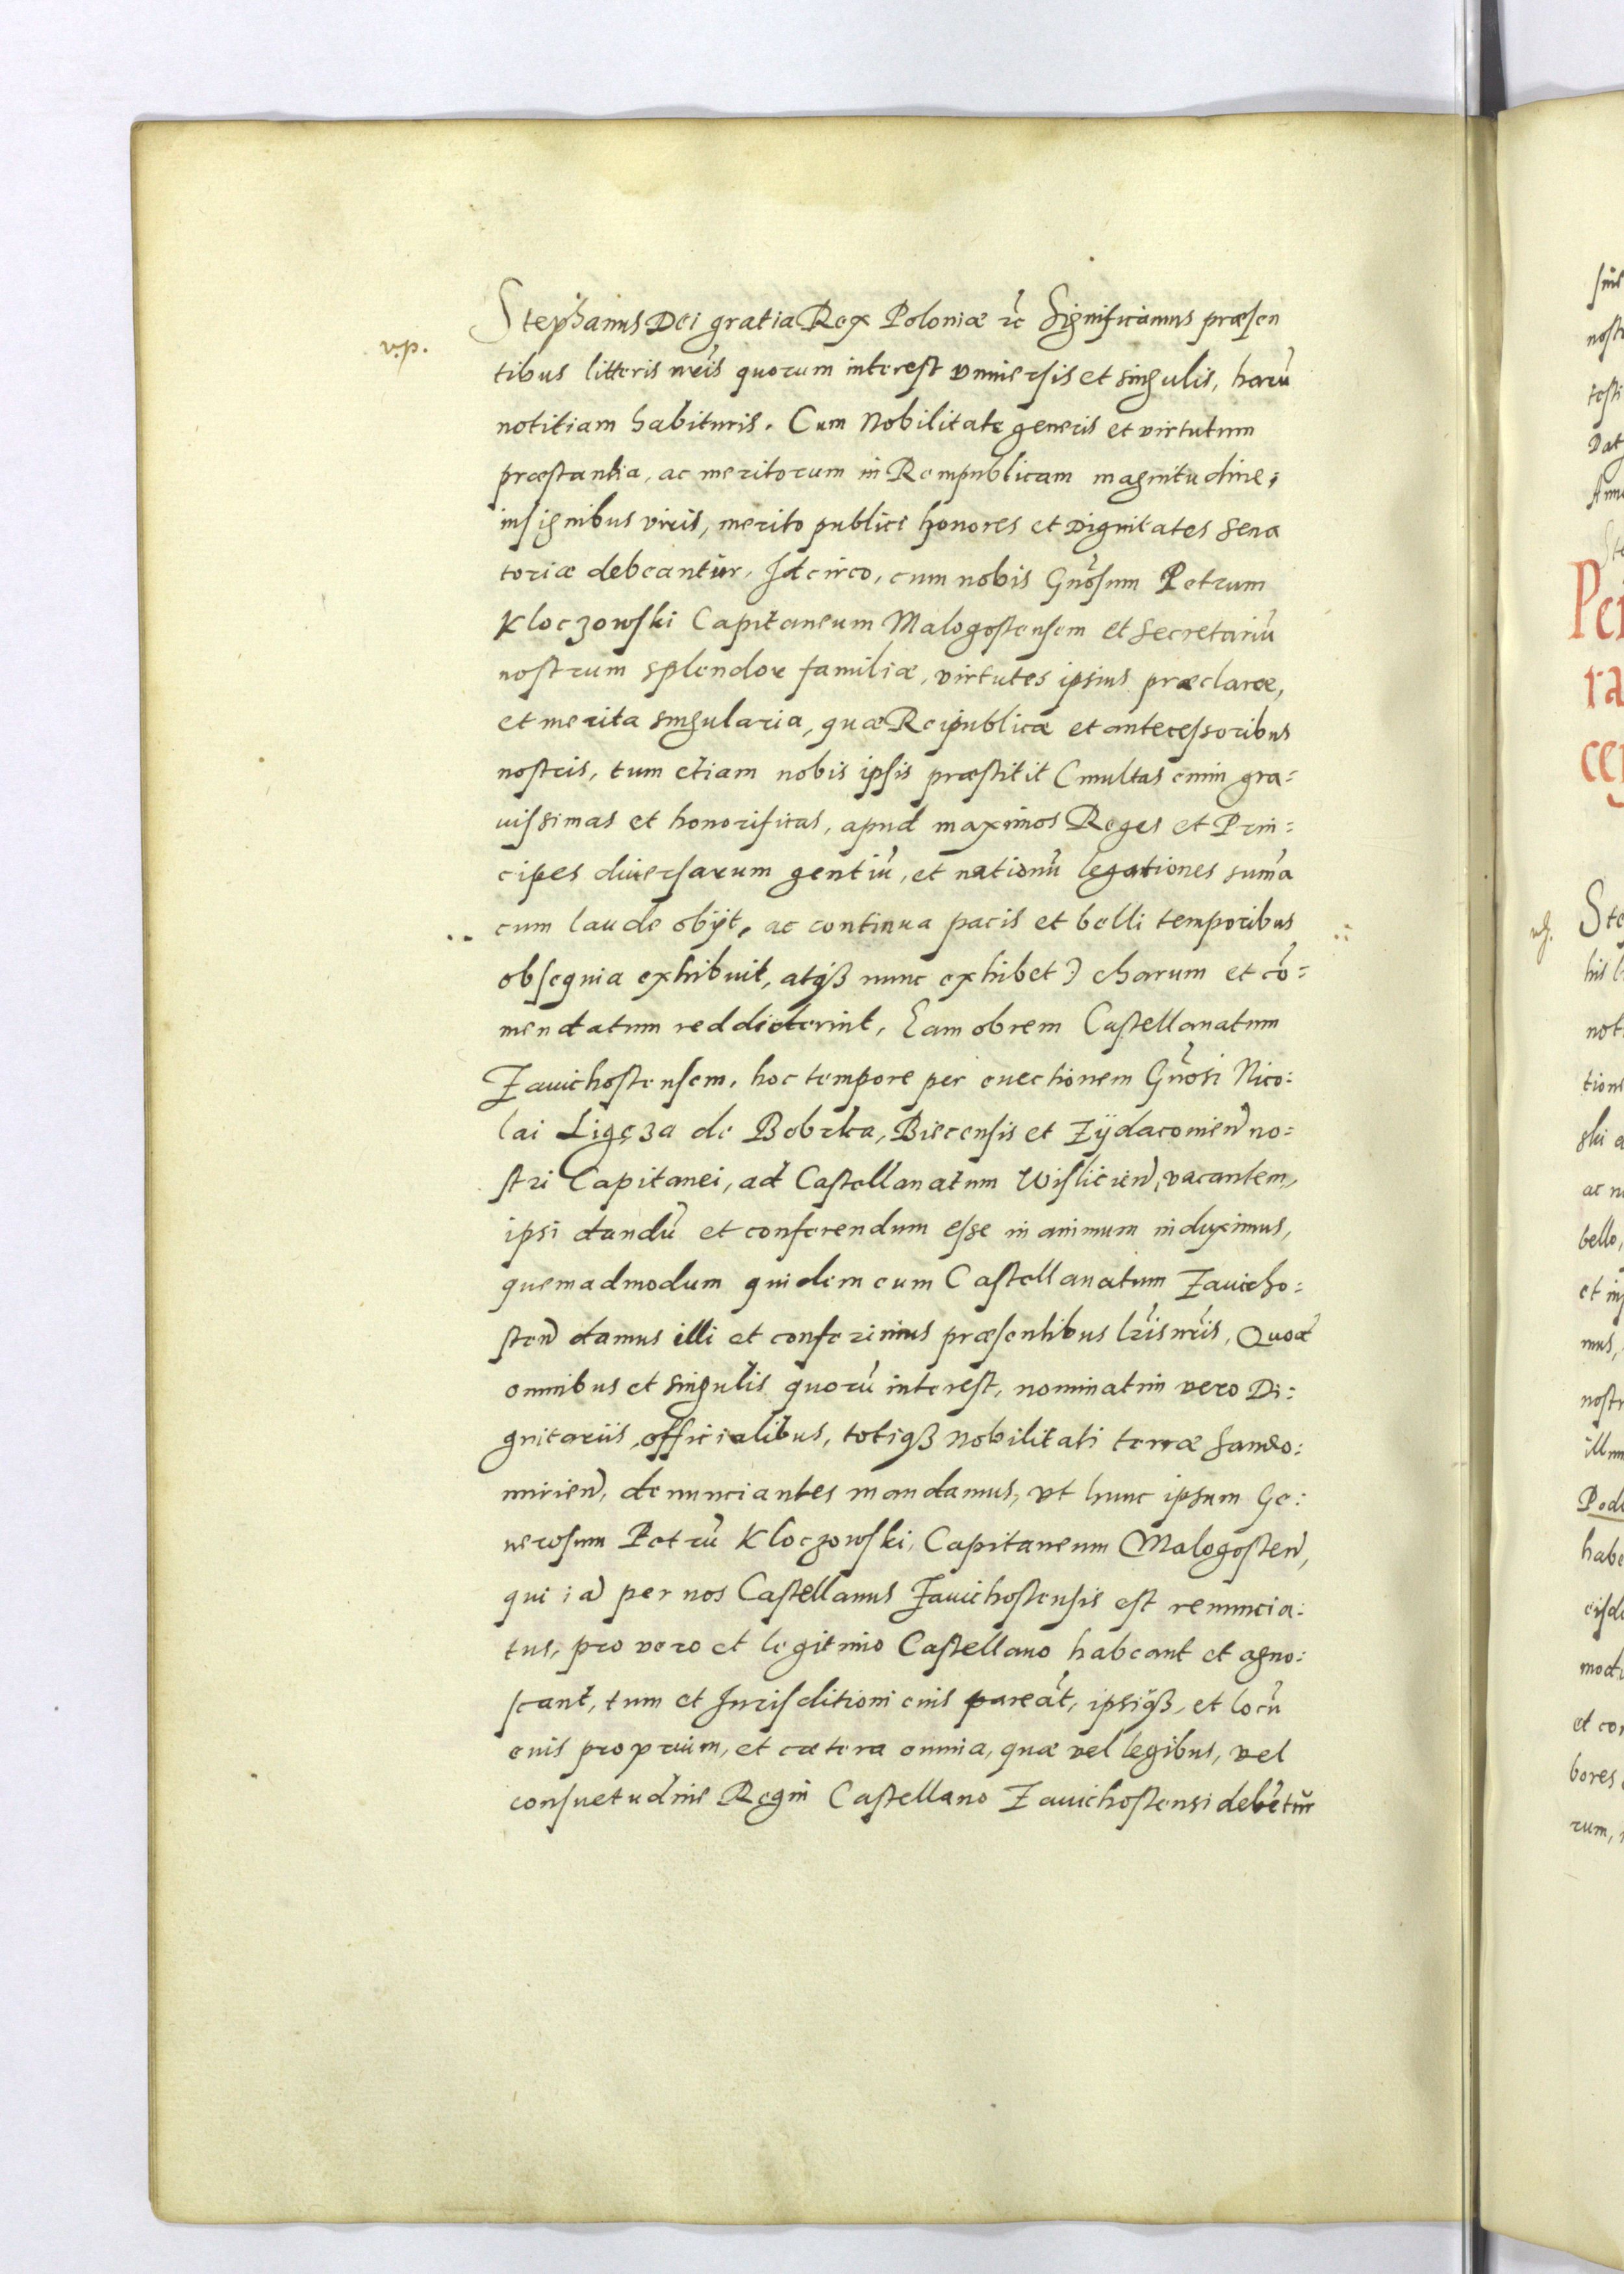 Stephanus Dei gratia Rex Poloniæ ꝛc Significamus præsen
v.p.
tibus litteris nr̃is quorum interest vniuersis et singulis, harũ
notitiam habituris. Cum Nobilitate generis et virtutum
præstantia, ac meritorum in Rempublicam magnitudine,
insignibus viris, merito publici honores et Dignitates Sena
toriæ debeantur. Idcirco, cum nobis Gnõsum Petrum
Kloczowski Capitaneum Malogostensem et Secretariũ
nostrum splendor familiæ, virtutes ipsius præclaræ,
et merita singularia, quæ Reipublicæ et antecessoribus
nostris, tum etiam nobis ipsis præstitit (multas enim gra=
uissimas et honorificas, apud maximos Reges et Prin=
cipes diuersarum gentiũ, et nationũ legationes sum̃a
cum laude obijt, ac continua pacis et belli temporibus
obsequia exhibuit, atqꝫ nunc exhibet) charum et cõ=
mendatum reddiderint, Eam obrem Castellanatum
Zauichostensem, hoc tempore per euectionem Gnõsi Nico=
lai Ligęza de Bobrka, Biecensis et Zÿdacouien̄ no=
stri Capitanei, ad Castellanatum Wislicien̄, vacantem,
ipsi dandũ et conferendum esse in animum induximus,
quemadmodum quidem eum Castellanatum Zauicho=
sten̄ damus illi et conferimus præsentibus lr̃is nr̃is, Quod
omnibus et singulis quorũ interest, nominatim vero Di=
gnitariis, officialibus, totiqꝫ Nobilitati terræ Sando=
mirien̄, denunciantes mandamus, vt hunc ipsum Ge=
nerosum Petrũ Kloczowski, Capitaneum Malogosten̄,
qui iā per nos Castellanus Zauichostensis est renuncia=
tus, pro vero et legitimo Castellano habeant et agno=
scant, tum et Jurisditioni euis pareãt, ipsiqꝫ, et locũ
euis proprium, et cætera omnia, quæ vel legibus, vel
consuetudine Regni Castellano Zauichostensi debẽtur